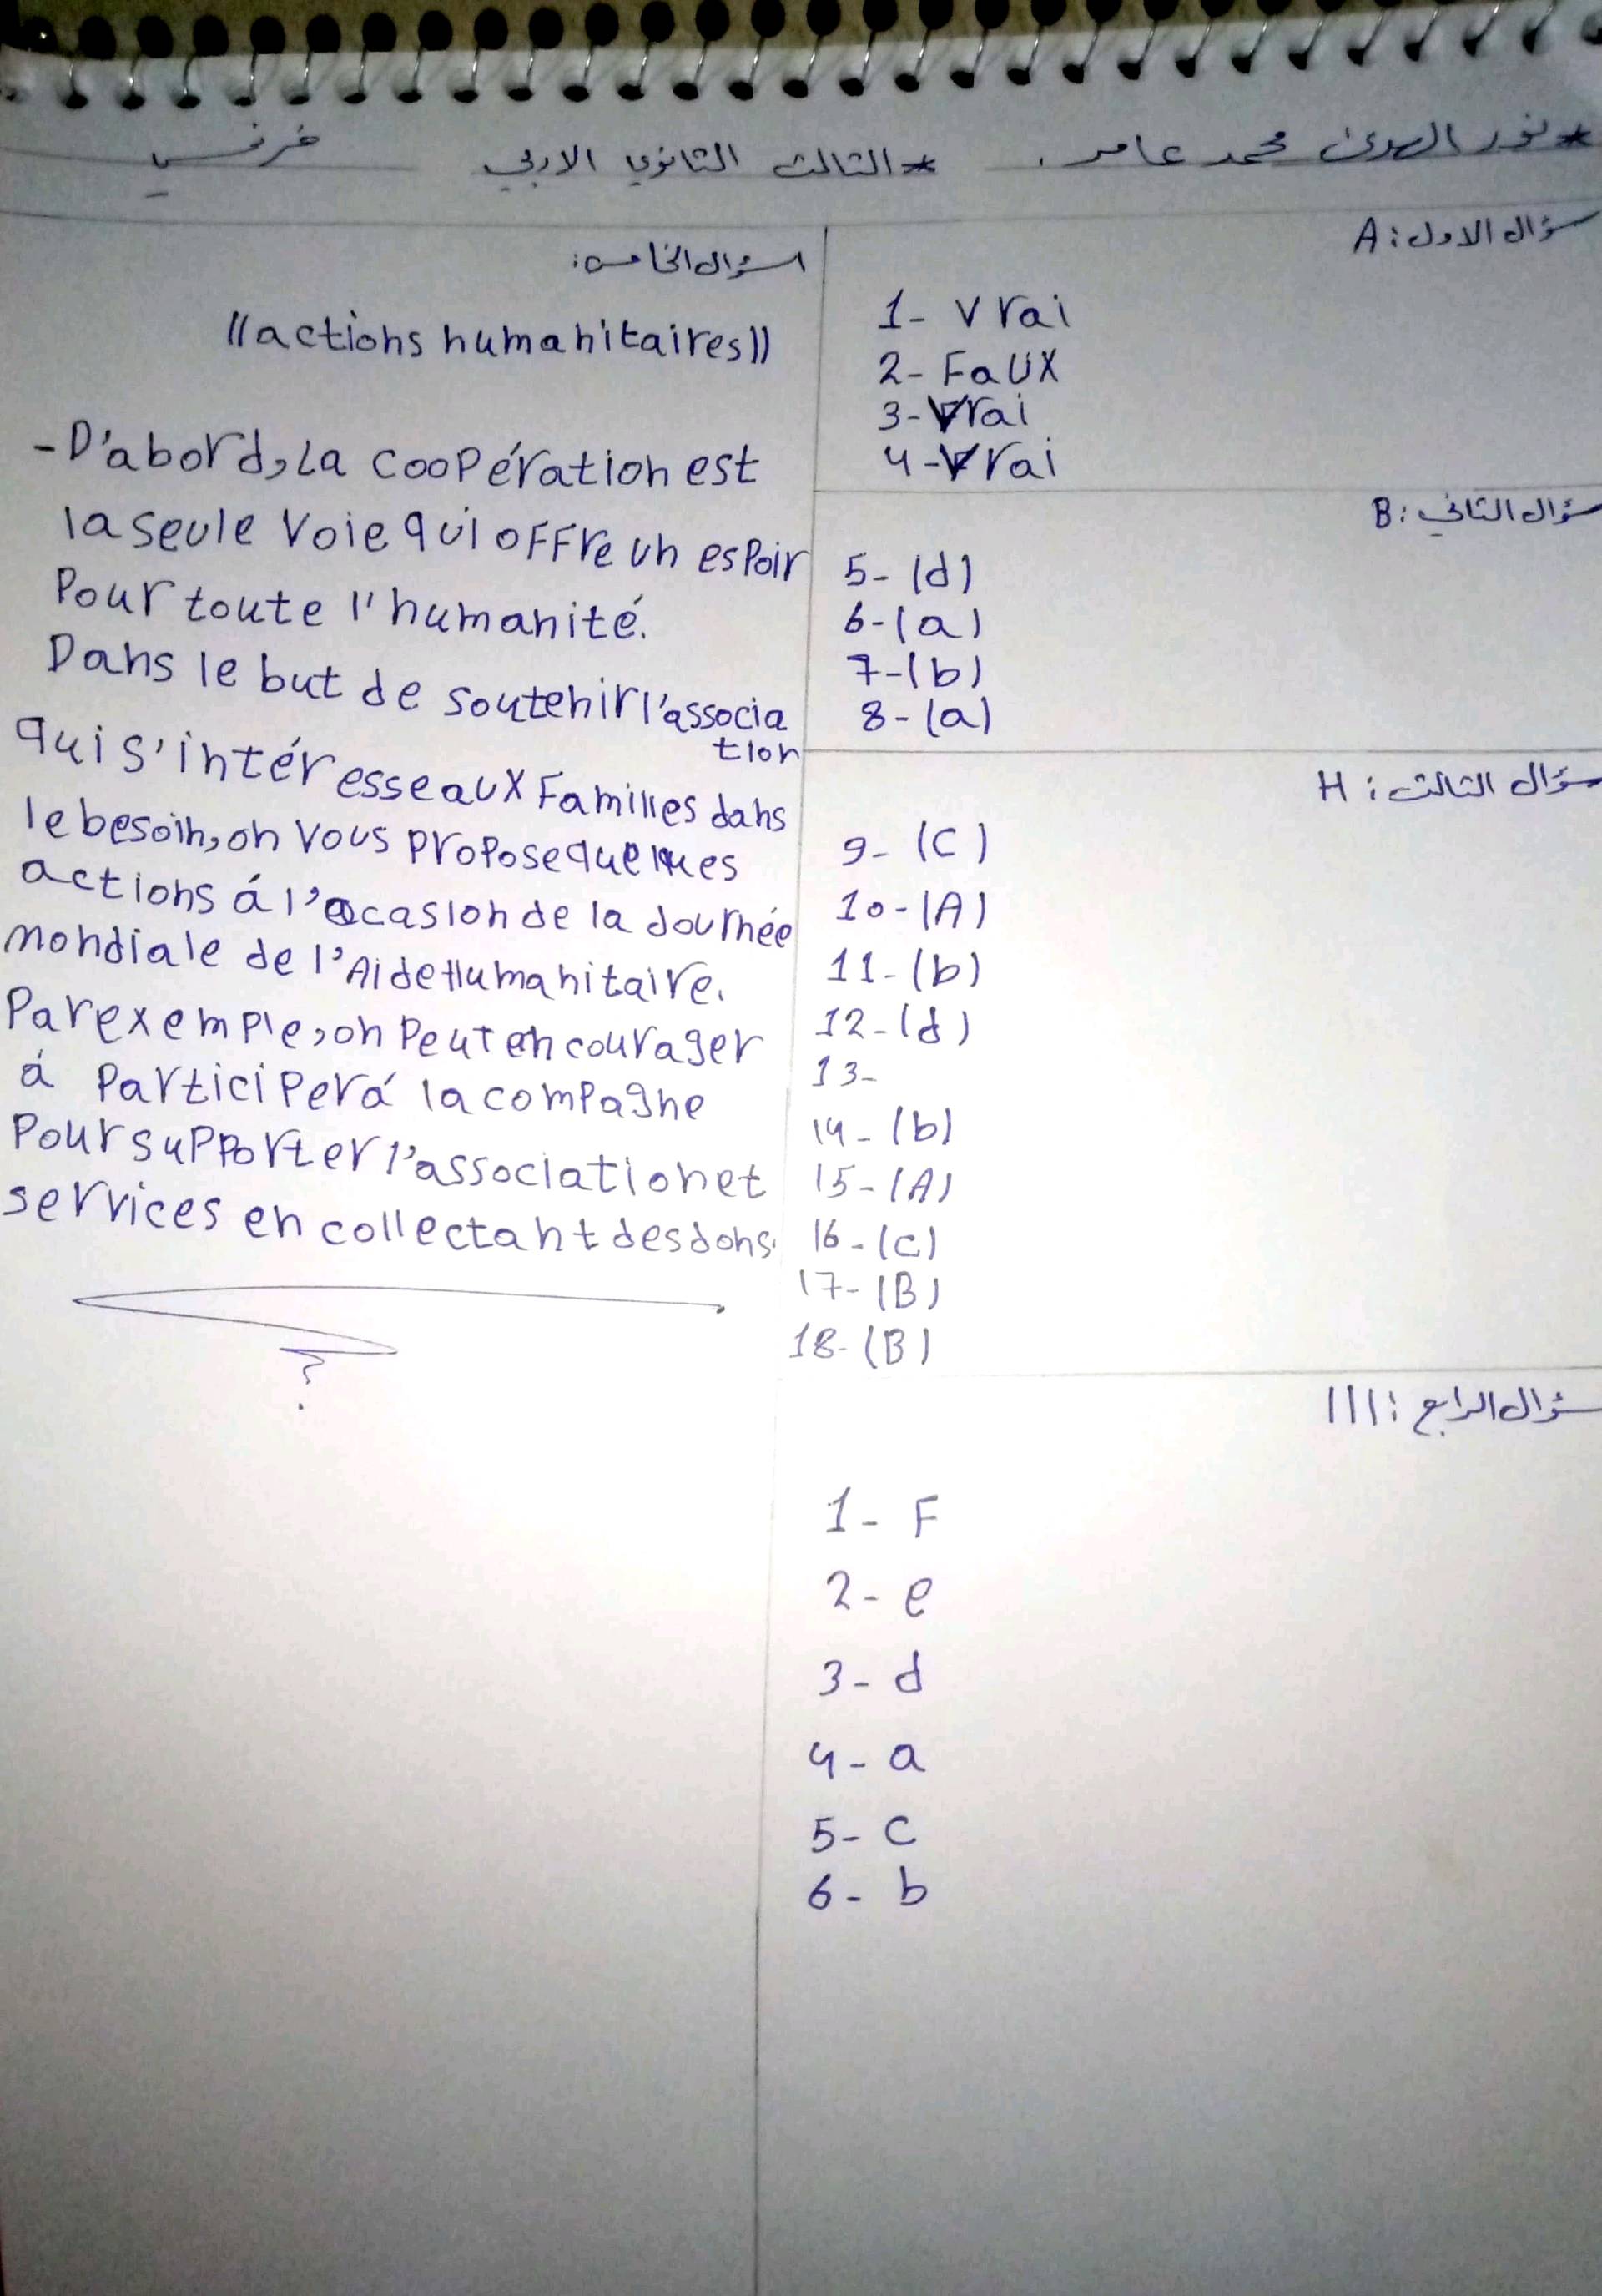 * نور الهدى محمد عامر . * الثالث الثانوي الادبي فرنسي
سؤال الاول : A
1- Vrai
2- FaUX
3- Vrai
4- Vrai
سؤال الثاني : B
5- (d)
6- (a)
7- (b)
8- (a)
سؤال الثالث : H
9- (C)
10- (A)
11- (b)
12- (d)
13-
14- (b)
15- (A)
16- (C)
17- (B)
18- (B)
سؤال الرابع : III
1- F
2- e
3- d
4- a
5- C
6- b
اسؤال الخامس :
((actions humanitaires))
- D'abord, La coopération est
la seule Voie qui offre un espoir
Pour toute l'humanité.
Dans le but de soutenir l'associa
tion
qui s'intéresse aux Familles dans
le besoin, on Vous propose quelques
actions á l'ocasion de la Journée
mondiale de l'Aide Humanitaire.
Par exemple, on Peut encourager
á Participer á la compagne
Pour supporter l'association et
services en collectant des dons.
?